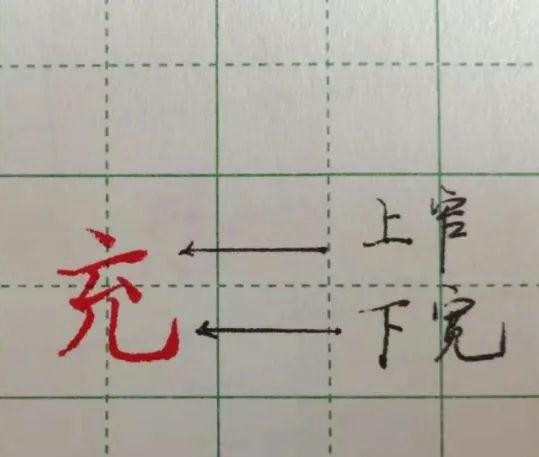 充
上窄
下宽